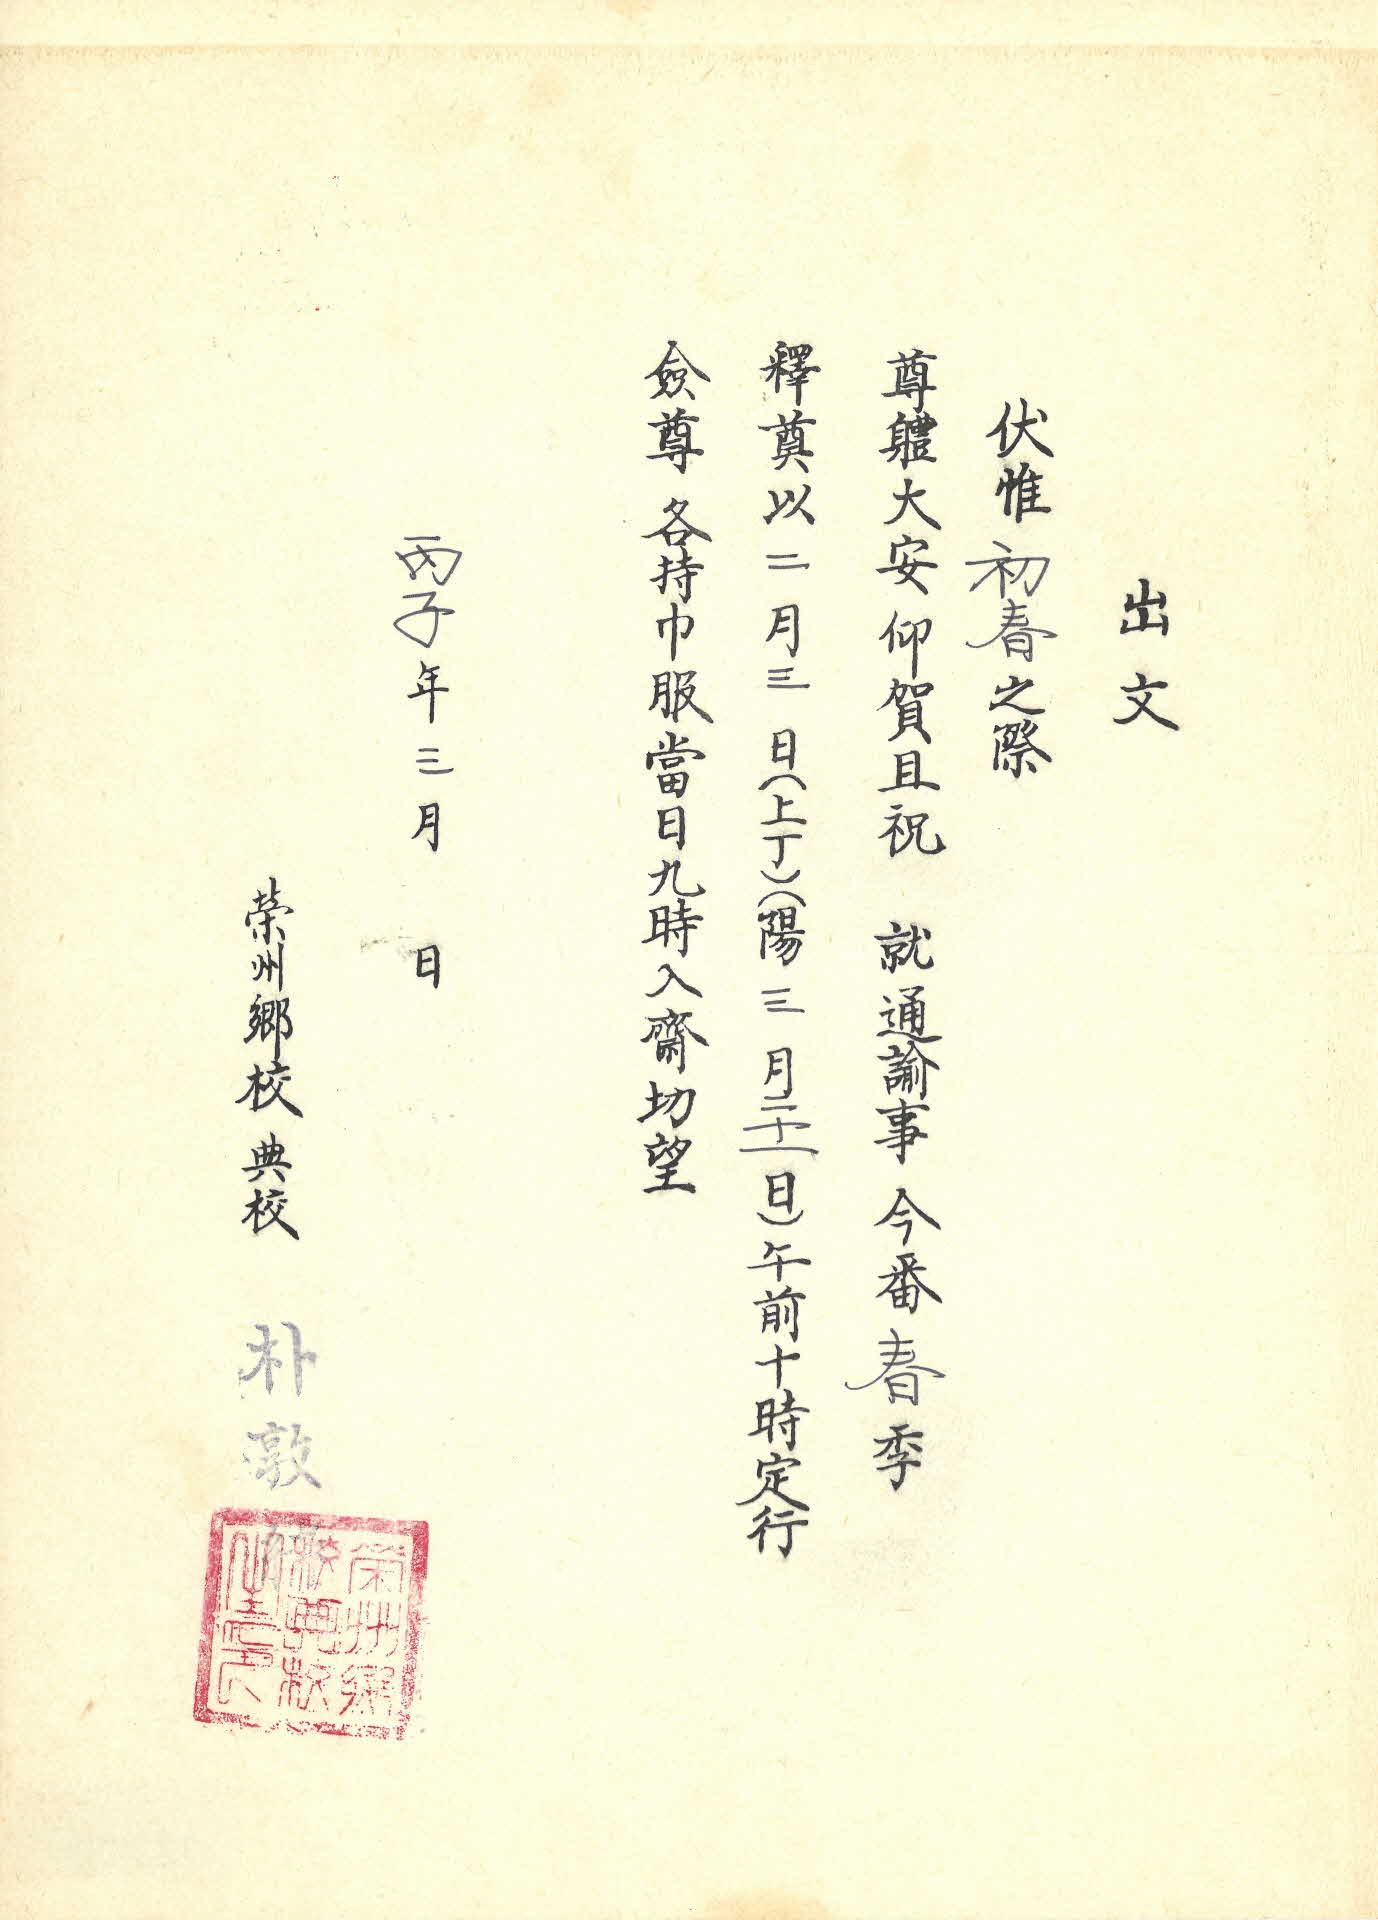 出文
伏惟初春之際
尊軆大安仰賀且祝 就通諭事 今番春季
釋奠以二月三日(上丁)(陽三月二十一日)午前十時定行
僉尊 各持巾服當日九時入齋切望
丙子年三月 日
榮州鄉校 典校 朴敦
榮州鄉校典校